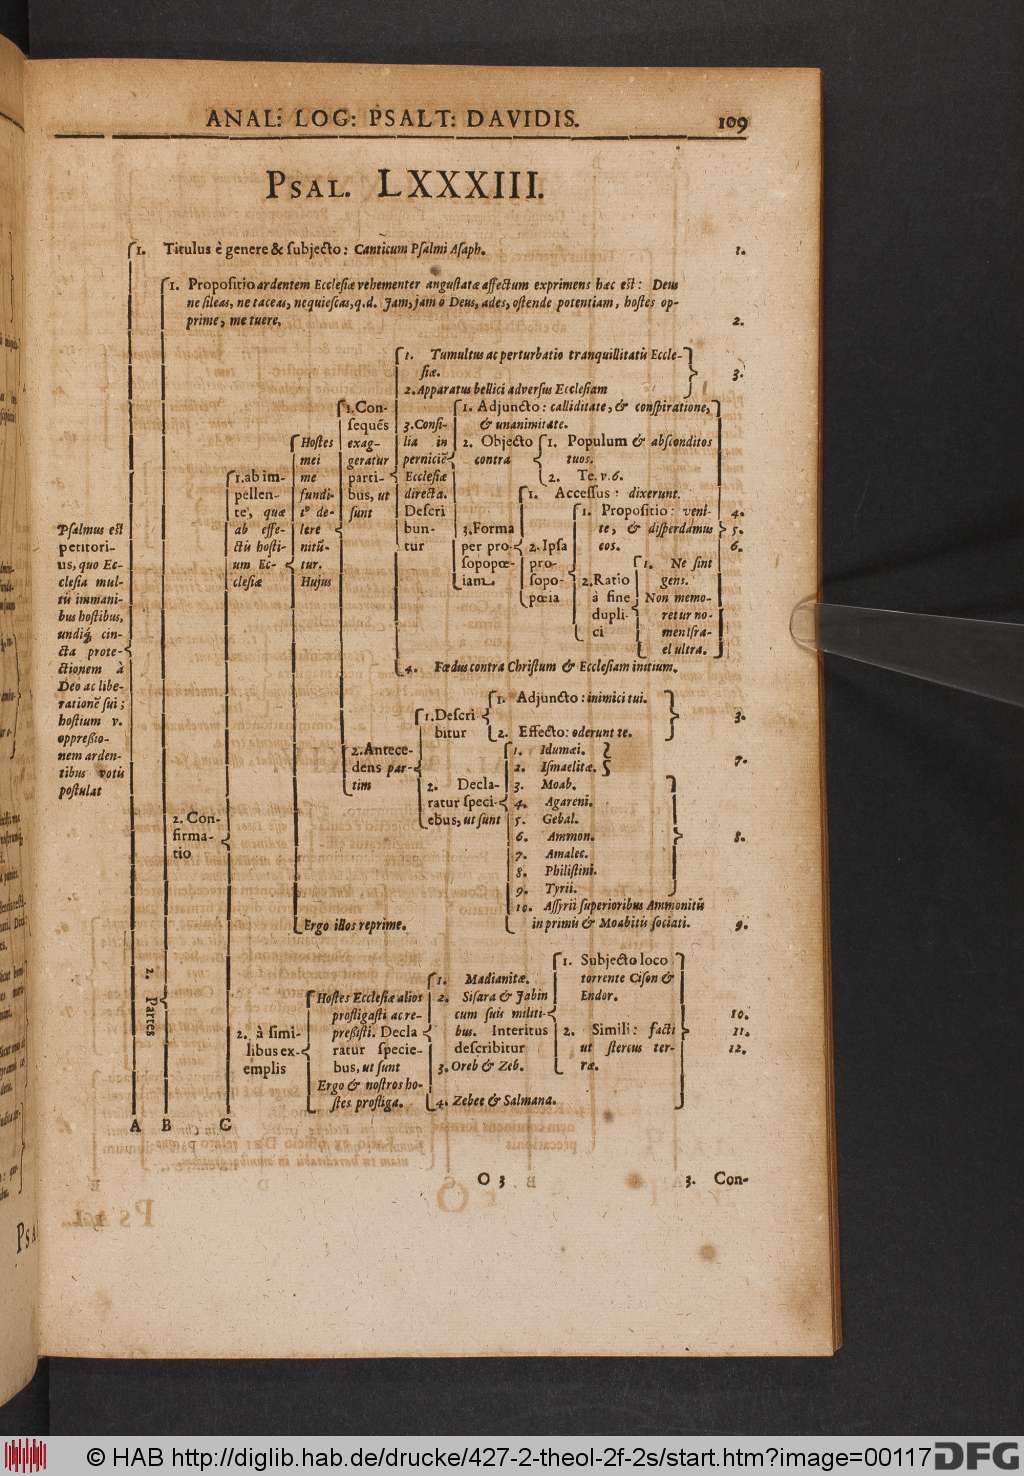 ANAL: LOG: PSALT: DAVIDIS. 109
PSAL. LXXXIII.
1. Titulus è genere & subjecto: Canticum Psalmi Asaph. 1.
1. Propositio ardentem Ecclesiæ vehementer angustatæ affectum exprimens hæc est: Deus
ne sileas, ne taceas, ne quiescas, q.d. Jam, jam o Deus, ades, ostende potentiam, hostes op-
prime, me tuere. 2.
Psalmus est
petitori-
us, quo Ec-
clesia mul-
tis immani-
bus hostibus,
undiq; cin-
cta prote-
ctionem à
Deo ac libe-
rationē sui;
hostium v.
oppressio-
nem arden-
tibus votis
postulat
2. Partes
2. Con-
firma-
tio
1. ab im-
pellen-
te, quæ
ab effe-
ctu hosti-
um Ec-
clesiæ
Hostes
mei
me
fundi-
to de-
lere
nitū-
tur.
Hujus
1. Con-
sequēs
exag-
geratur
parti-
bus, ut
sunt
1. Tumultus ac perturbatio tranquillitatis Eccle-
siæ.
2. Apparatus bellici adversus Ecclesiam
3.
3. Consi-
lia in
perniciē
Ecclesiæ
directa.
Descri
bun-
tur
1. Adjuncto: calliditate, & conspiratione,
& unanimitate.
2. Objecto
contra
1. Populum & absconditos
tuos.
2. Te. v. 6.
3. Forma
per pro-
sopopœ-
iam.
1. Accessus: dixerunt.
2. Ipsa
pro-
sopo-
pœia
1. Propositio: veni-
te, & disperdamus
eos.
2. Ratio
à fine
dupli-
ci
1. Ne sint
gens.
Non memo-
retur no-
men Isra-
el ultra.
4.
5.
6.
4. Fœdus contra Christum & Ecclesiam initium.
2. Antece-
dens par-
tim
1. Descri
bitur
1. Adjuncto: inimici tui.
2. Effecto: oderunt te.
3.
2. Decla-
ratur speci-
ebus, ut sunt
1. Idumæi.
2. Ismaelitæ.
7.
3. Moab.
4. Agareni.
5. Gebal.
6. Ammon.
7. Amalec.
8. Philistini.
9. Tyrii.
8.
10. Assyrii superioribus Ammonitis
in primis & Moabitis sociati. 9.
Ergo illos reprime.
2. à simi-
libus ex-
emplis
Hostes Ecclesiæ alios
profligasti ac re-
pressisti. Decla
ratur specie-
bus, ut sunt
Ergo & nostros ho-
stes profliga.
1. Madianitæ.
2. Sisara & Jabin
cum suis militi-
bus. Interitus
describitur
1. Subjecto loco
torrente Cison &
Endor.
2. Simili: facti
ut stercus ter-
ræ.
3. Oreb & Zeb.
4. Zebee & Salmana.
10.
11.
12.
A B C
O 3 3. Con-
© HAB http://diglib.hab.de/drucke/427-2-theol-2f-2s/start.htm?image=00117
DFG